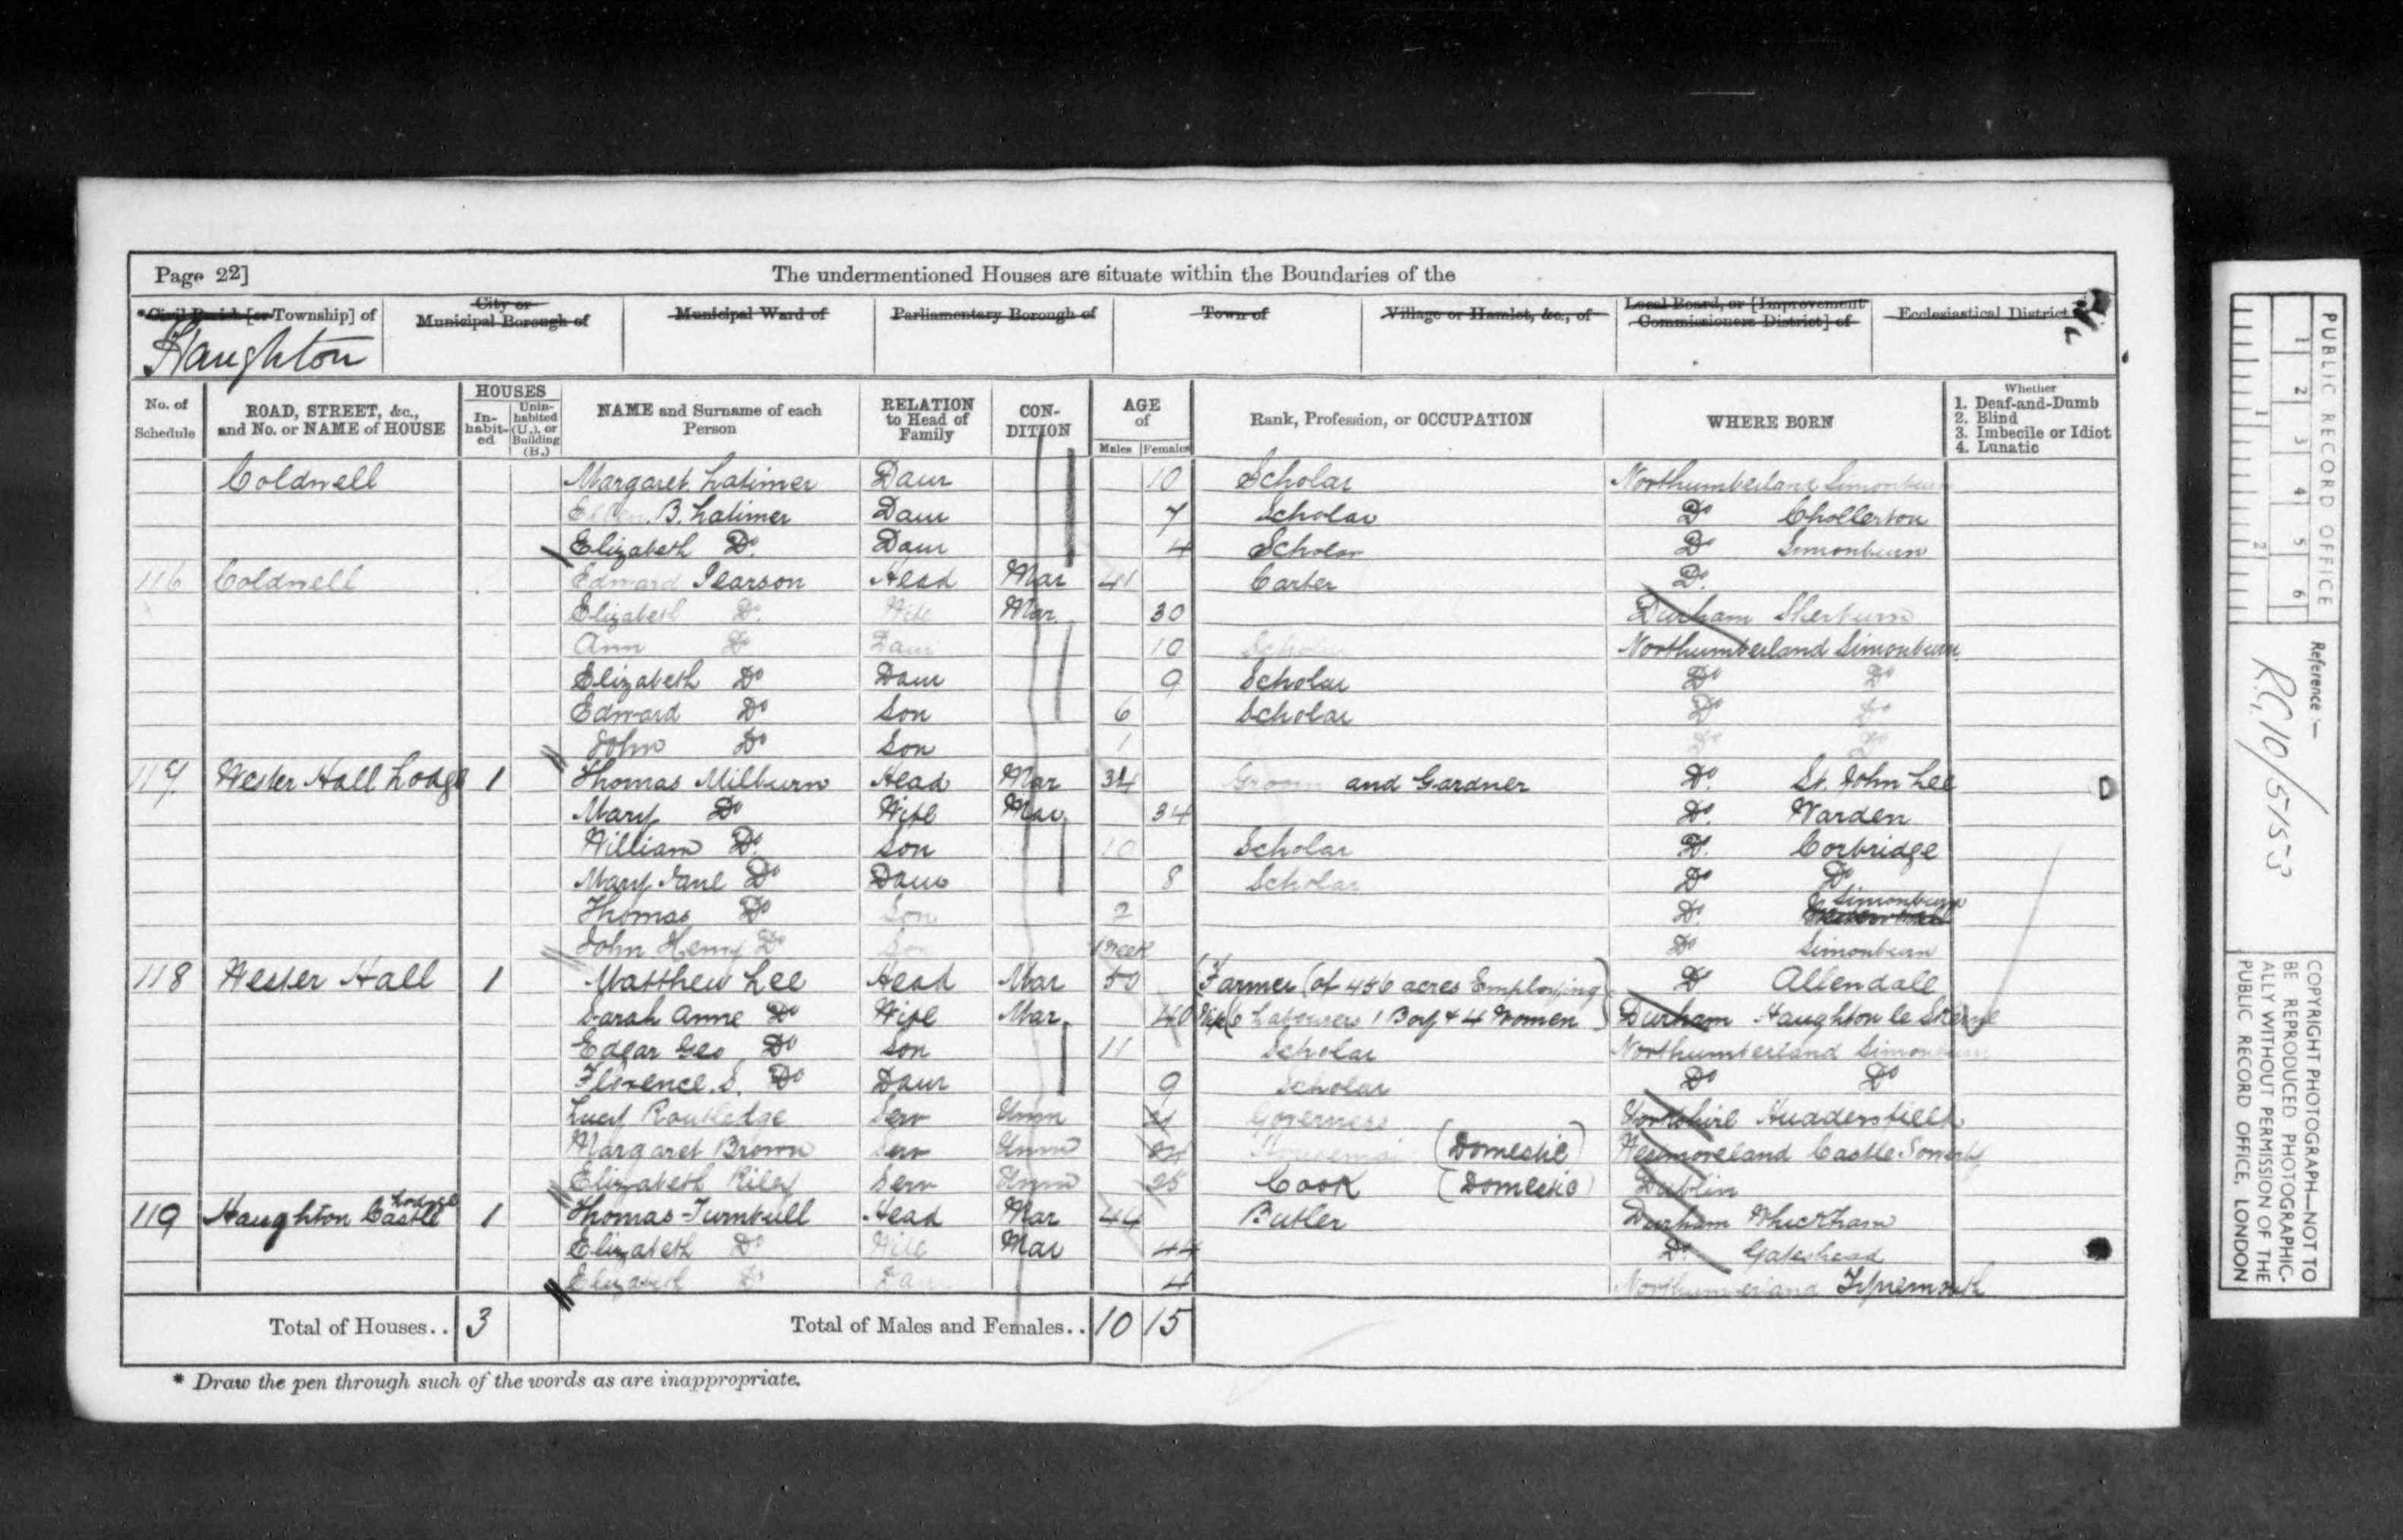 Page 22]
The undermentioned Houses are situate within the Boundaries of the
*Civil Parish [or Township] of
City or Municipal Borough of
Municipal Ward of
Parliamentary Borough of
Town of
Village or Hamlet, &c., of
Local Board, or [Improvement Commissioners District] of
Ecclesiastical District
Haughton
No. of Schedule
ROAD, STREET, &c., and No. or NAME of HOUSE
HOUSES
In-habit-ed
Unin-habited (U.), or Building (B.)
NAME and Surname of each Person
RELATION to Head of Family
CON-DITION
AGE of
Males Females
Rank, Profession, or OCCUPATION
WHERE BORN
Whether
1. Deaf-and-Dumb
2. Blind
3. Imbecile or Idiot
4. Lunatic
Coldwell Margaret Latimer Daur 10 Scholar Northumberland Simonburn
B. Latimer Daur 7 Scholar Do Chollerton
Elizabeth Do Daur 4 Scholar Do Simonburn
116 Coldwell Edward Pearson Head Mar 41 Carter Do
Elizabeth Do Wife Mar 30 Durham Sherburn
Ann Do Daur 10 Scholar Northumberland Simonburn
Elizabeth Do Daur 9 Scholar Do Do
Edward Do Son 6 Scholar Do Do
John Do Son 1 Do Do
117 Wester Hall Lodge 1 Thomas Milburn Head Mar 34 Groom and Gardner Do St. John Lee
Mary Do Wife Mar 34 Do Warden
William Do Son 10 Scholar Do Corbridge
Mary Jane Do Daur 8 Scholar Do Do
Thomas Do Son 2 Do Simonburn
John Henry Do Son 1 week Do Simonburn
118 Wester Hall 1 Matthew Lee Head Mar 50 (Farmer (of 456 acres Employing Do Allendale
Sarah Anne Do Wife Mar 40 Wife (6 Labourers 1 Boy & 4 Women) Durham Haughton le Skerne
Edgar Geo Do Son 11 Scholar Northumberland Simonburn
Florence. S. Do Daur 9 Scholar Do Do
Lucy Routledge Serv Unm Governess Yorkshire Huddersfield
Margaret Brown Serv Unm Housemaid (Domestic) Westmoreland Castle Sowerby
Elizabeth Riley Serv Unm 25 Cook (Domestic) Dublin
119 Haughton Castle Lodge 1 Thomas Turnbull Head Mar 44 Butler Durham Whickham
Elizabeth Do Wife Mar 44 Do Gateshead
Elizabeth Do Daur 4 Northumberland Tynemouth
Total of Houses.. 3 Total of Males and Females.. 10 15
* Draw the pen through such of the words as are inappropriate.
PUBLIC RECORD OFFICE
1 2 3 4 5 6
1 2
Reference :—
R.G. 10/5153
COPYRIGHT PHOTOGRAPH—NOT TO
BE REPRODUCED PHOTOGRAPHIC-
ALLY WITHOUT PERMISSION OF THE
PUBLIC RECORD OFFICE, LONDON